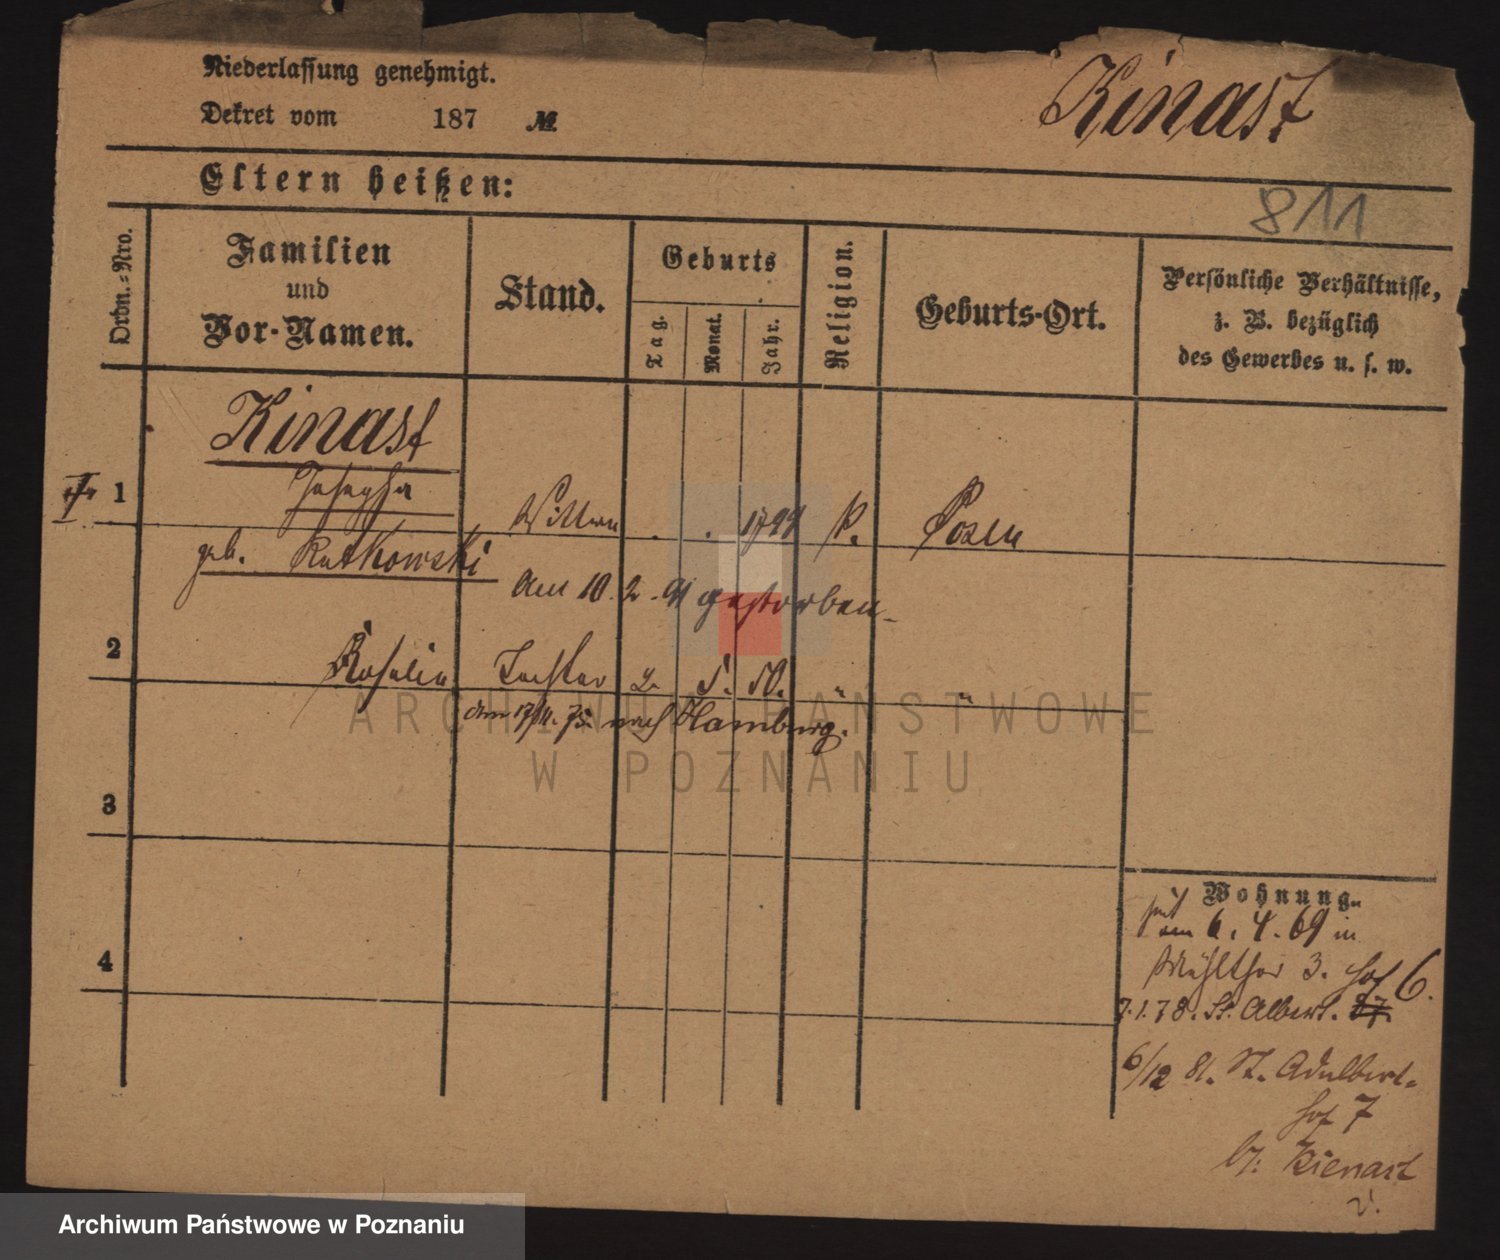 Niederlassung genehmigt.
Dekret vom 187 №
Kinast
Eltern heißen:
811
Ordn.-Nro.
Familien
und
Vor-Namen.
Stand.
Geburts
Tag.
Monat.
Jahr.
Religion.
Geburts-Ort.
Persönliche Verhältnisse,
z. B. bezüglich
des Gewerbes u. s. w.
Kinast
1 Josepha Wittwe K. Posen
geb. Rutkowski
Am 10. 2. 91 gestorben
2 Rosalia Tochter 2. 5. 50. " "
am 17/11. 75. nach Hamburg.
3
4
Wohnung.
seit
am 6. 4. 69 in
Mühlthor 3. Hof 6.
7.1.78. St. Albert. 37.
6/12 81. St. Adalbert-
hof 7
b/: Kienast
ARCHIWUM PAŃSTWOWE
W POZNANIU
Archiwum Państwowe w Poznaniu